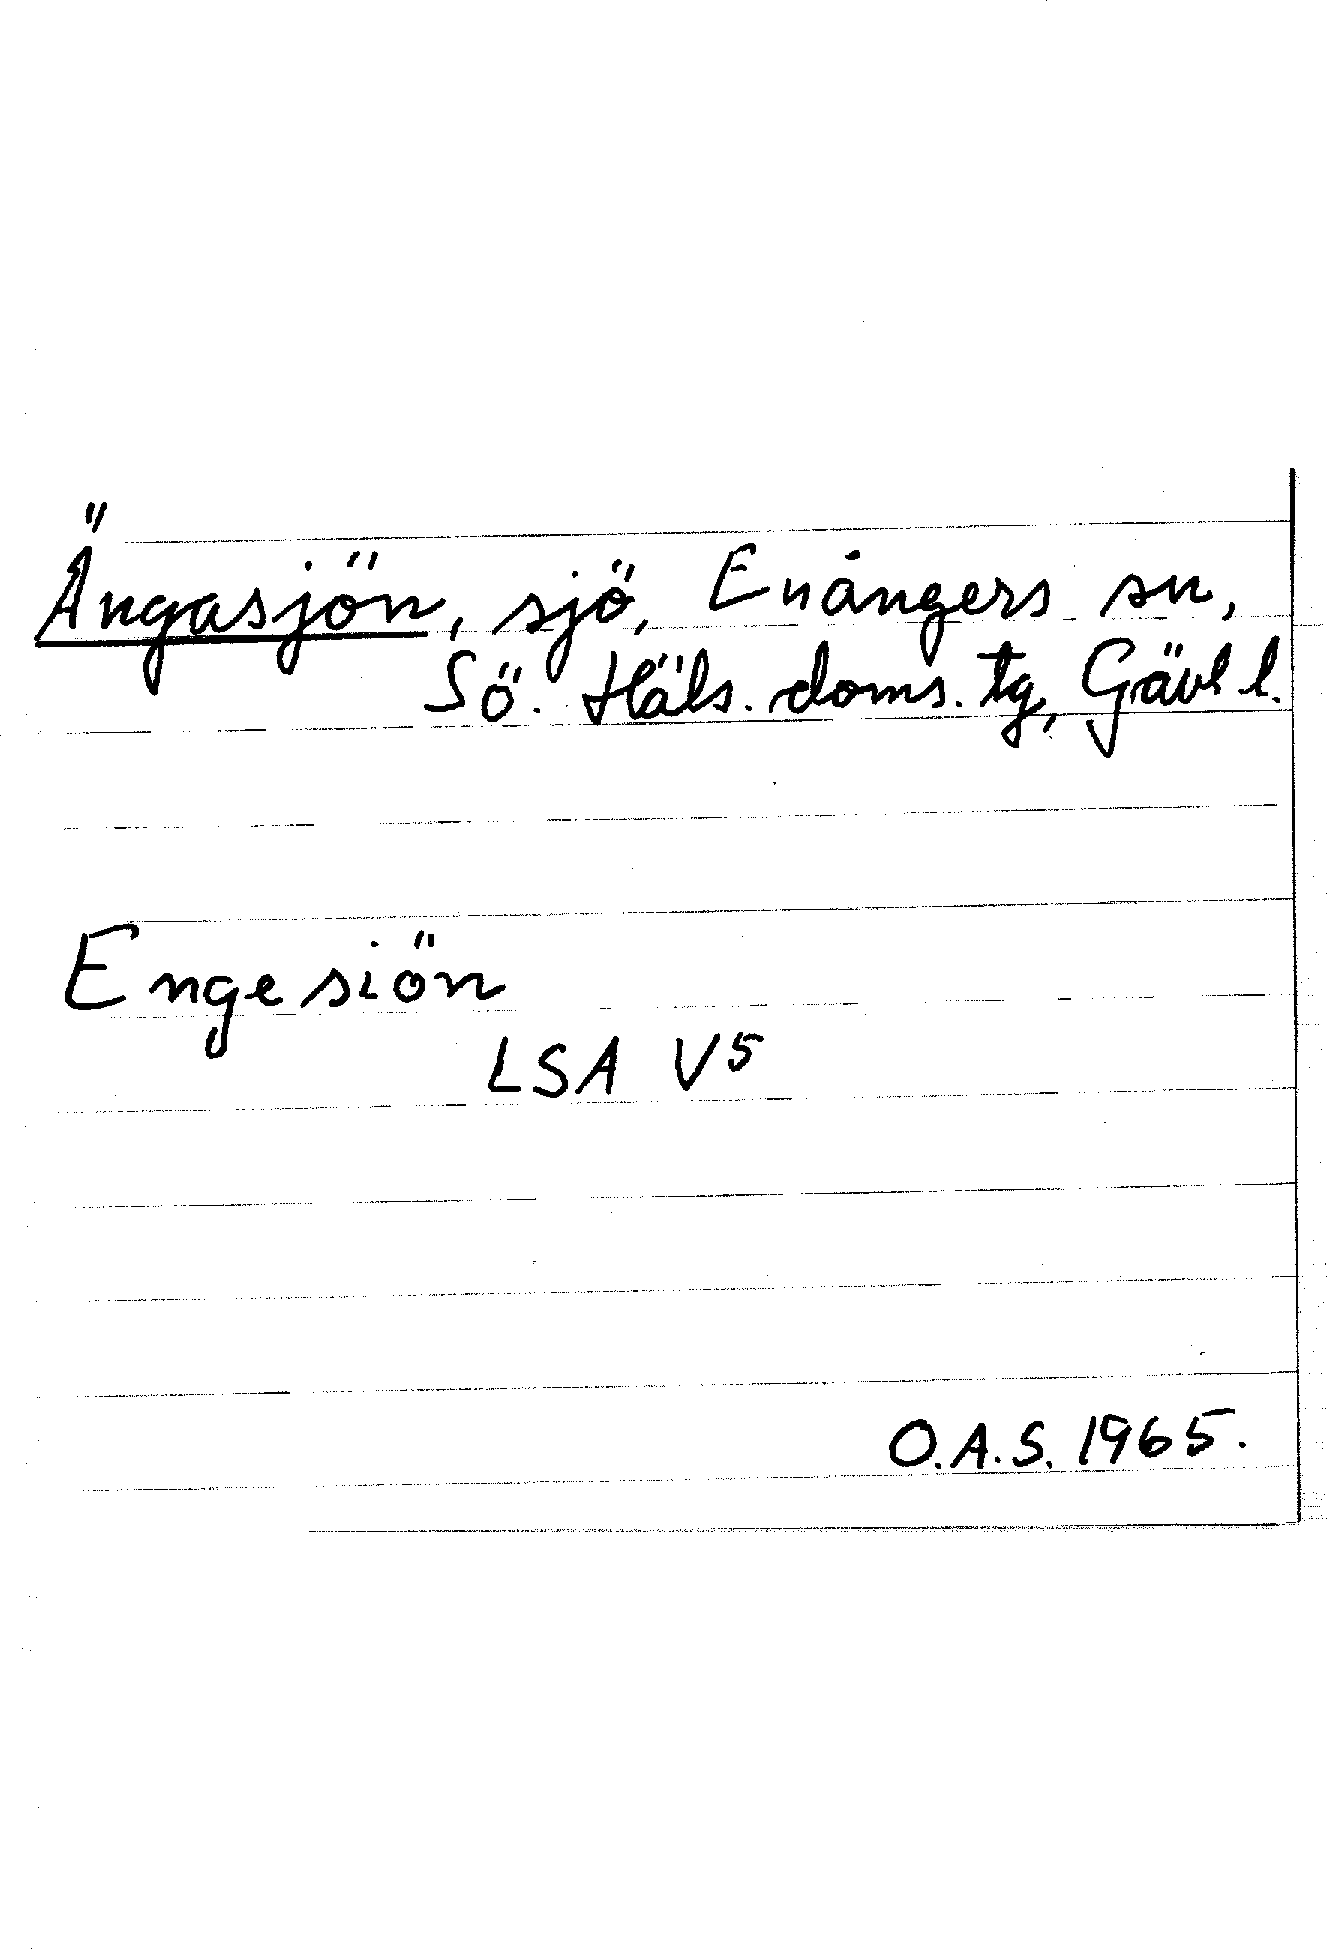 Ängasjön, sjö, Enångers sn,
Sö. Häls. doms. tg, Gävl l.
Engesiön
LSA V5
O.A.S. 1965.